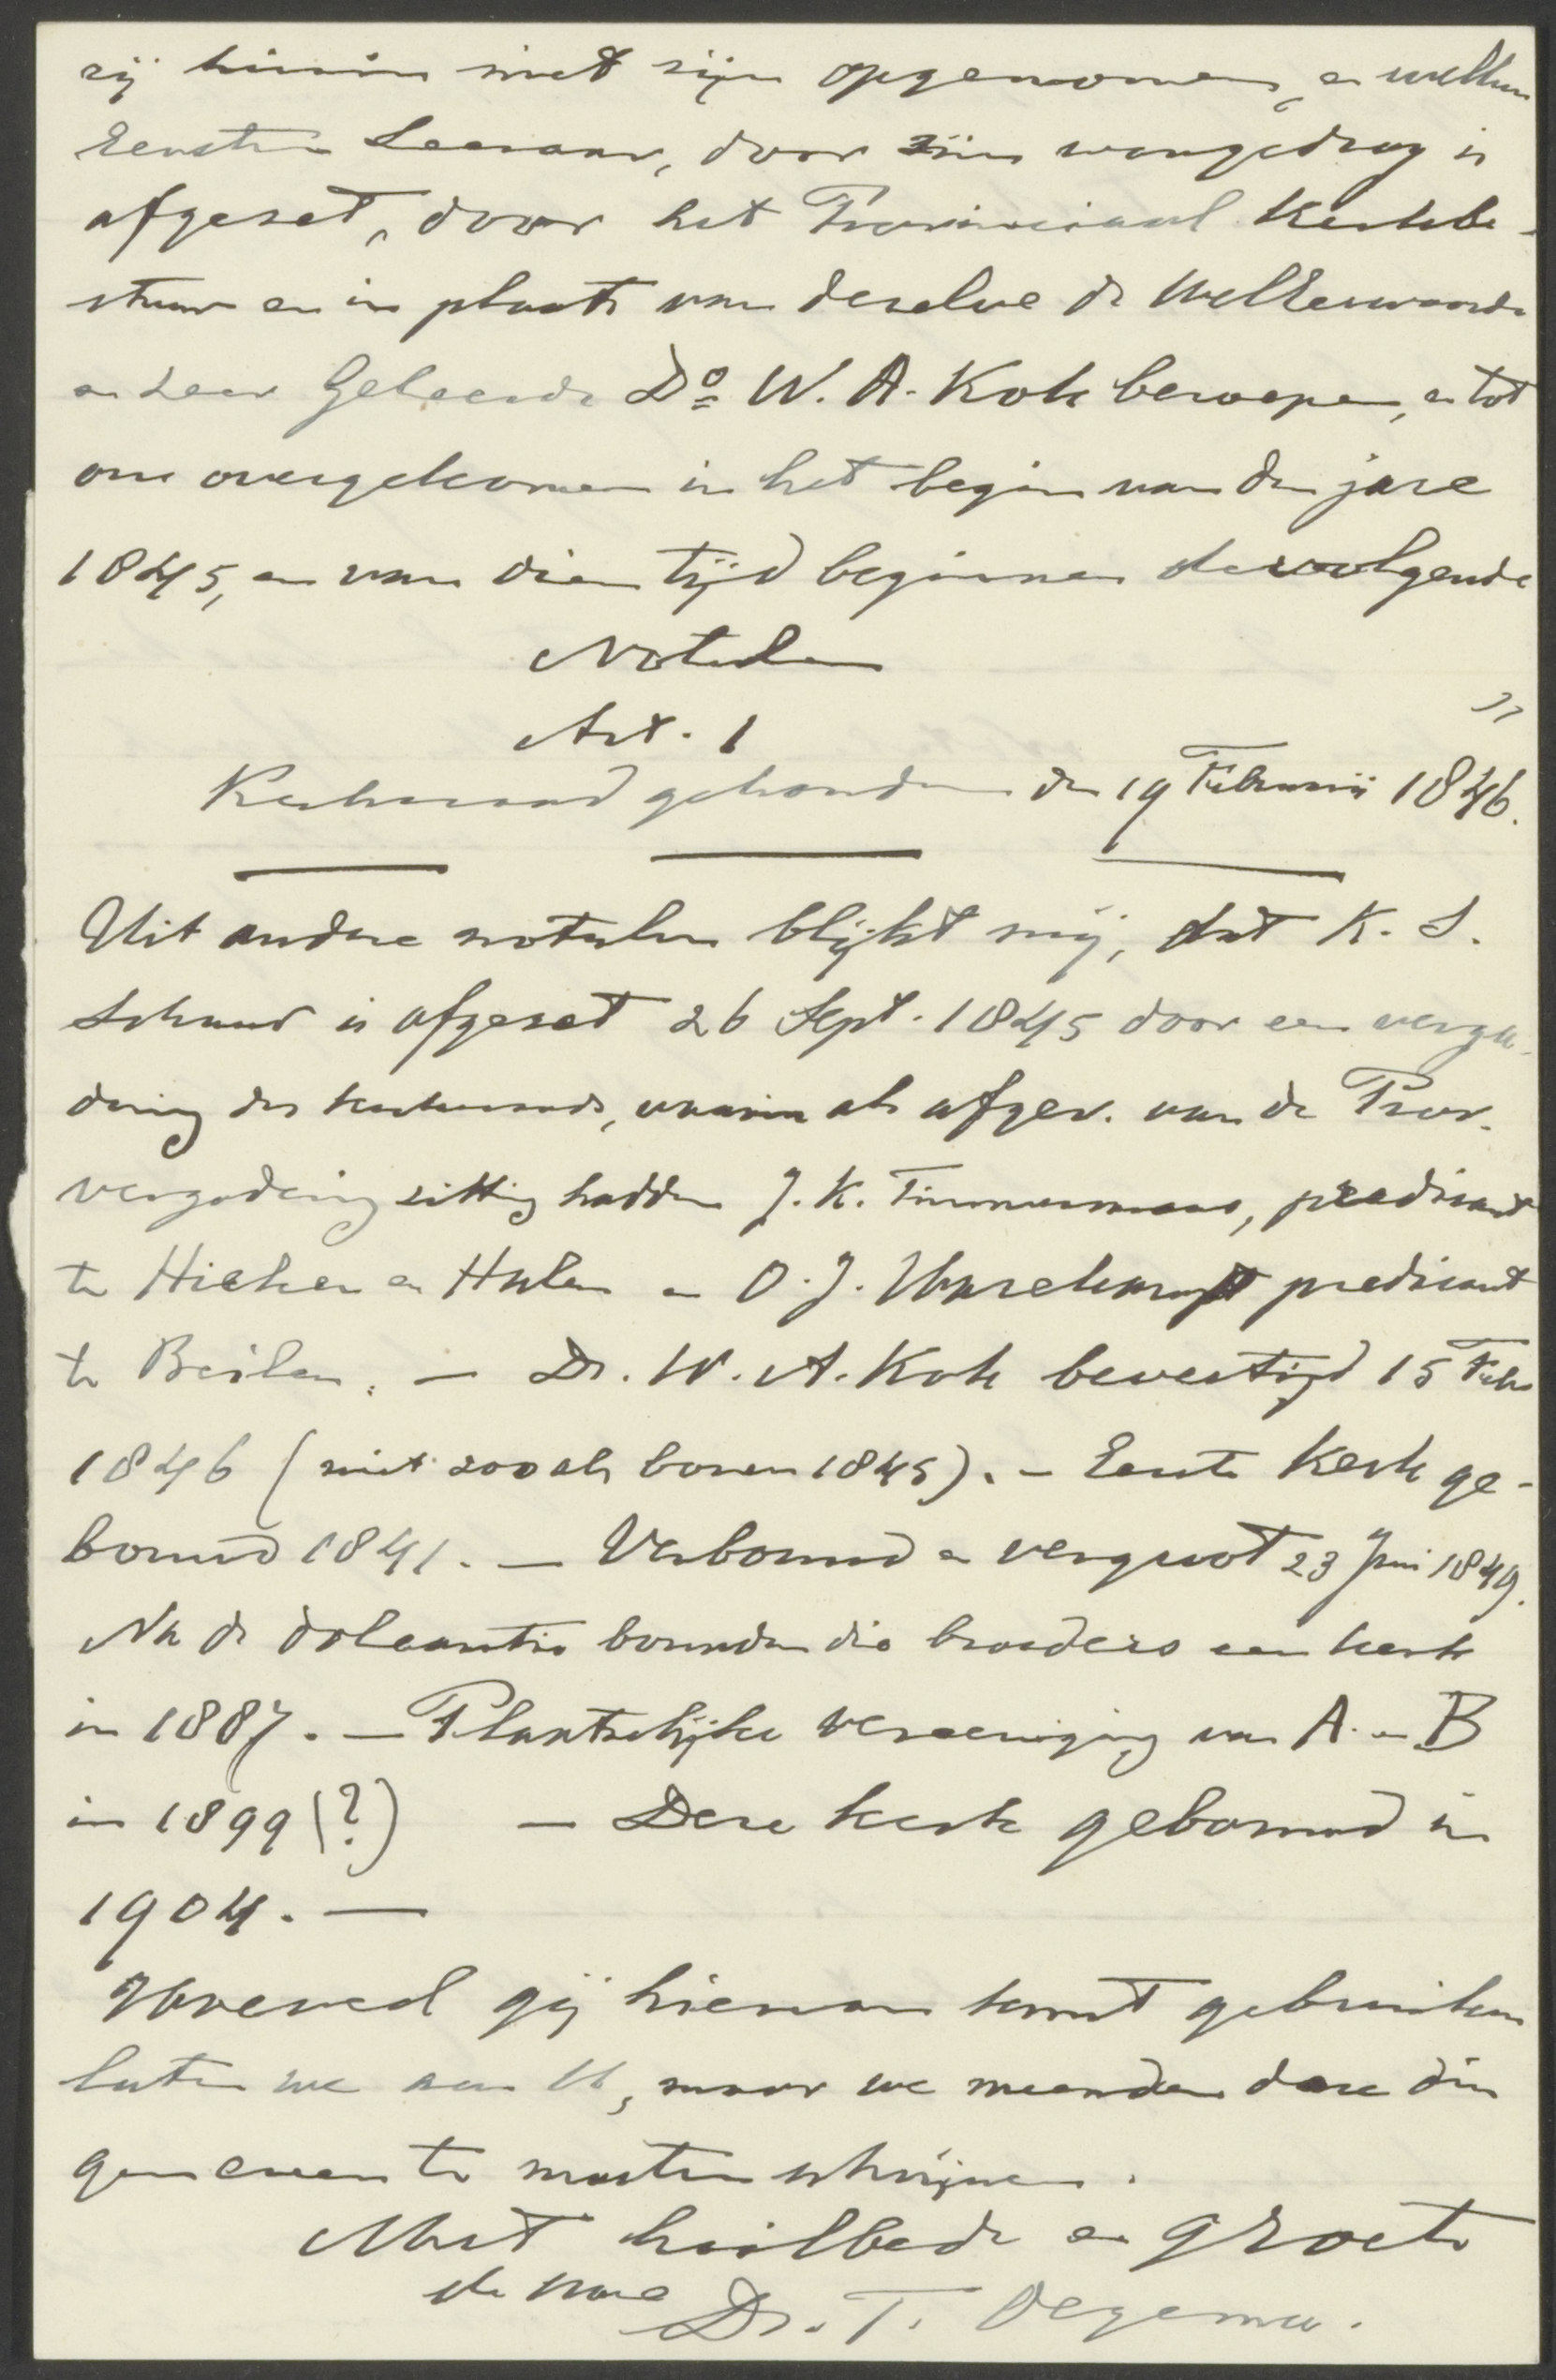 zij hierin niet zijn opgenomen, en welken
Eersten Leeraar, door zijn wangedrag is
afgezet, door het Provinciaal Kerkbe-
stuur en in plaats van dezelve de WelEerwaarde
en Zeer Geleerde Do W. A. Kok beroepen, en tot
ons overgekomen in het begin van den jare
1845, en van dien tijd beginnen de volgende
Notulen
Art. 1 "
Kerkeraad gehouden den 19 Februarii 1846.
Uit andere notulen blijkt mij, dat K. S.
is afgezet 26 Sept. 1845 door een verga-
dering des kerkeraads, waarin als afgev. van de Prov.
vergadering zitting hadden J. K. Timmermans, predicant
te Hieken en Halen en O. J. predicant
te Beilen. — Ds. W. A. Kok bevestigd 15 Febr
1846 (niet zooals boven 1845). — Eerste Kerk ge-
bouwd 1841. — Verbouwd en vergroot 23 Juni 1849.
Na de doleantie bouwden die broeders een kerk
in 1887. — Plaatselijke vereeniging van A. en B
in 1899 (?) — Deze kerk gebouwd in
1904. —
Hoeveel gij hiervan kunt gebruiken
laten we aan U, maar we meenden deze din
gen even te moeten schrijven.
Met heilbede en groete
de Uwe
Ds. T. Oegema.